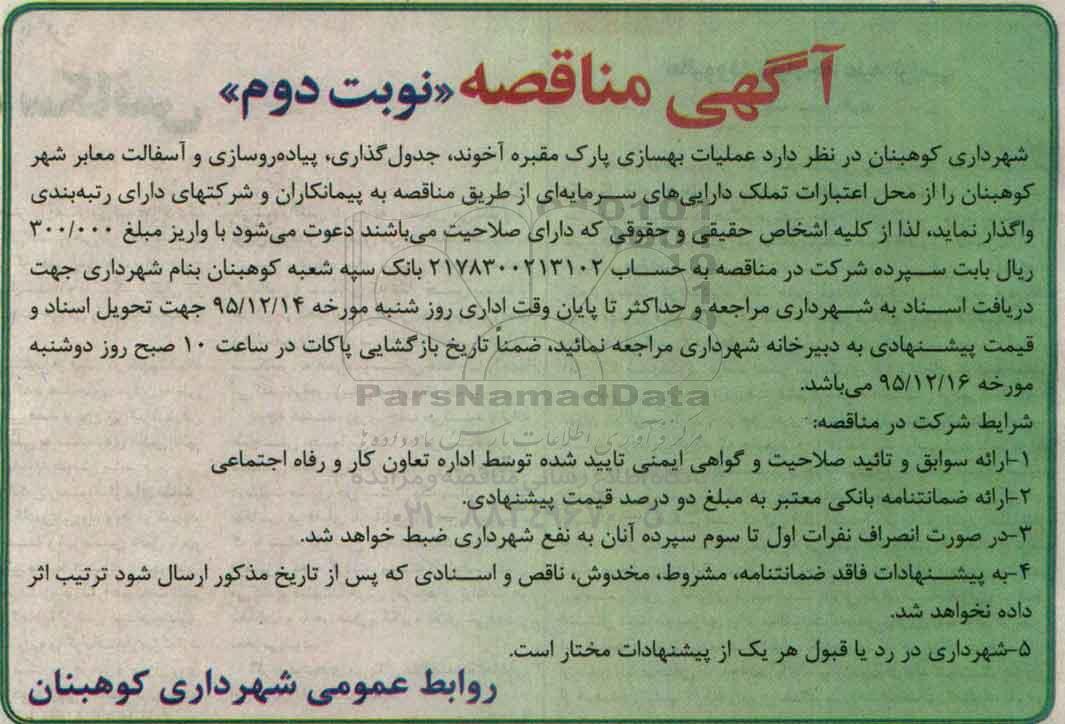 آگهی مناقصه «نوبت دوم»
شهرداری کوهبنان در نظر دارد عملیات بهسازی پارک مقبره آخوند، جدول‌گذاری، پیاده‌روسازی و آسفالت معابر شهر
کوهبنان را از محل اعتبارات تملک دارایی‌های سرمایه‌ای از طریق مناقصه به پیمانکاران و شرکتهای دارای رتبه‌بندی
واگذار نماید، لذا از کلیه اشخاص حقیقی و حقوقی که دارای صلاحیت می‌باشند دعوت می‌شود با واریز مبلغ ۳۰۰/۰۰۰
ریال بابت سپرده شرکت در مناقصه به حساب ۲۱۷۸۳۰۰۲۱۳۱۰۲ بانک سپه شعبه کوهبنان بنام شهرداری جهت
دریافت اسناد به شهرداری مراجعه و حداکثر تا پایان وقت اداری روز شنبه مورخه ۹۵/۱۲/۱۴ جهت تحویل اسناد و
قیمت پیشنهادی به دبیرخانه شهرداری مراجعه نمائید، ضمناً تاریخ بازگشایی پاکات در ساعت ۱۰ صبح روز دوشنبه
مورخه ۹۵/۱۲/۱۶ می‌باشد.
ParsNamadData
شرایط شرکت در مناقصه:
مرکز فرآوری اطلاعات پارس نماد داده‌ها
۱-ارائه سوابق و تائید صلاحیت و گواهی ایمنی تایید شده توسط اداره تعاون کار و رفاه اجتماعی
پایگاه اطلاع رسانی مناقصه و مزایده
۲-ارائه ضمانتنامه بانکی معتبر به مبلغ دو درصد قیمت پیشنهادی.
۳-در صورت انصراف نفرات اول تا سوم سپرده آنان به نفع شهرداری ضبط خواهد شد.
۴-به پیشنهادات فاقد ضمانتنامه، مشروط، مخدوش، ناقص و اسنادی که پس از تاریخ مذکور ارسال شود ترتیب اثر
داده نخواهد شد.
۵-شهرداری در رد یا قبول هر یک از پیشنهادات مختار است.
روابط عمومی شهرداری کوهبنان